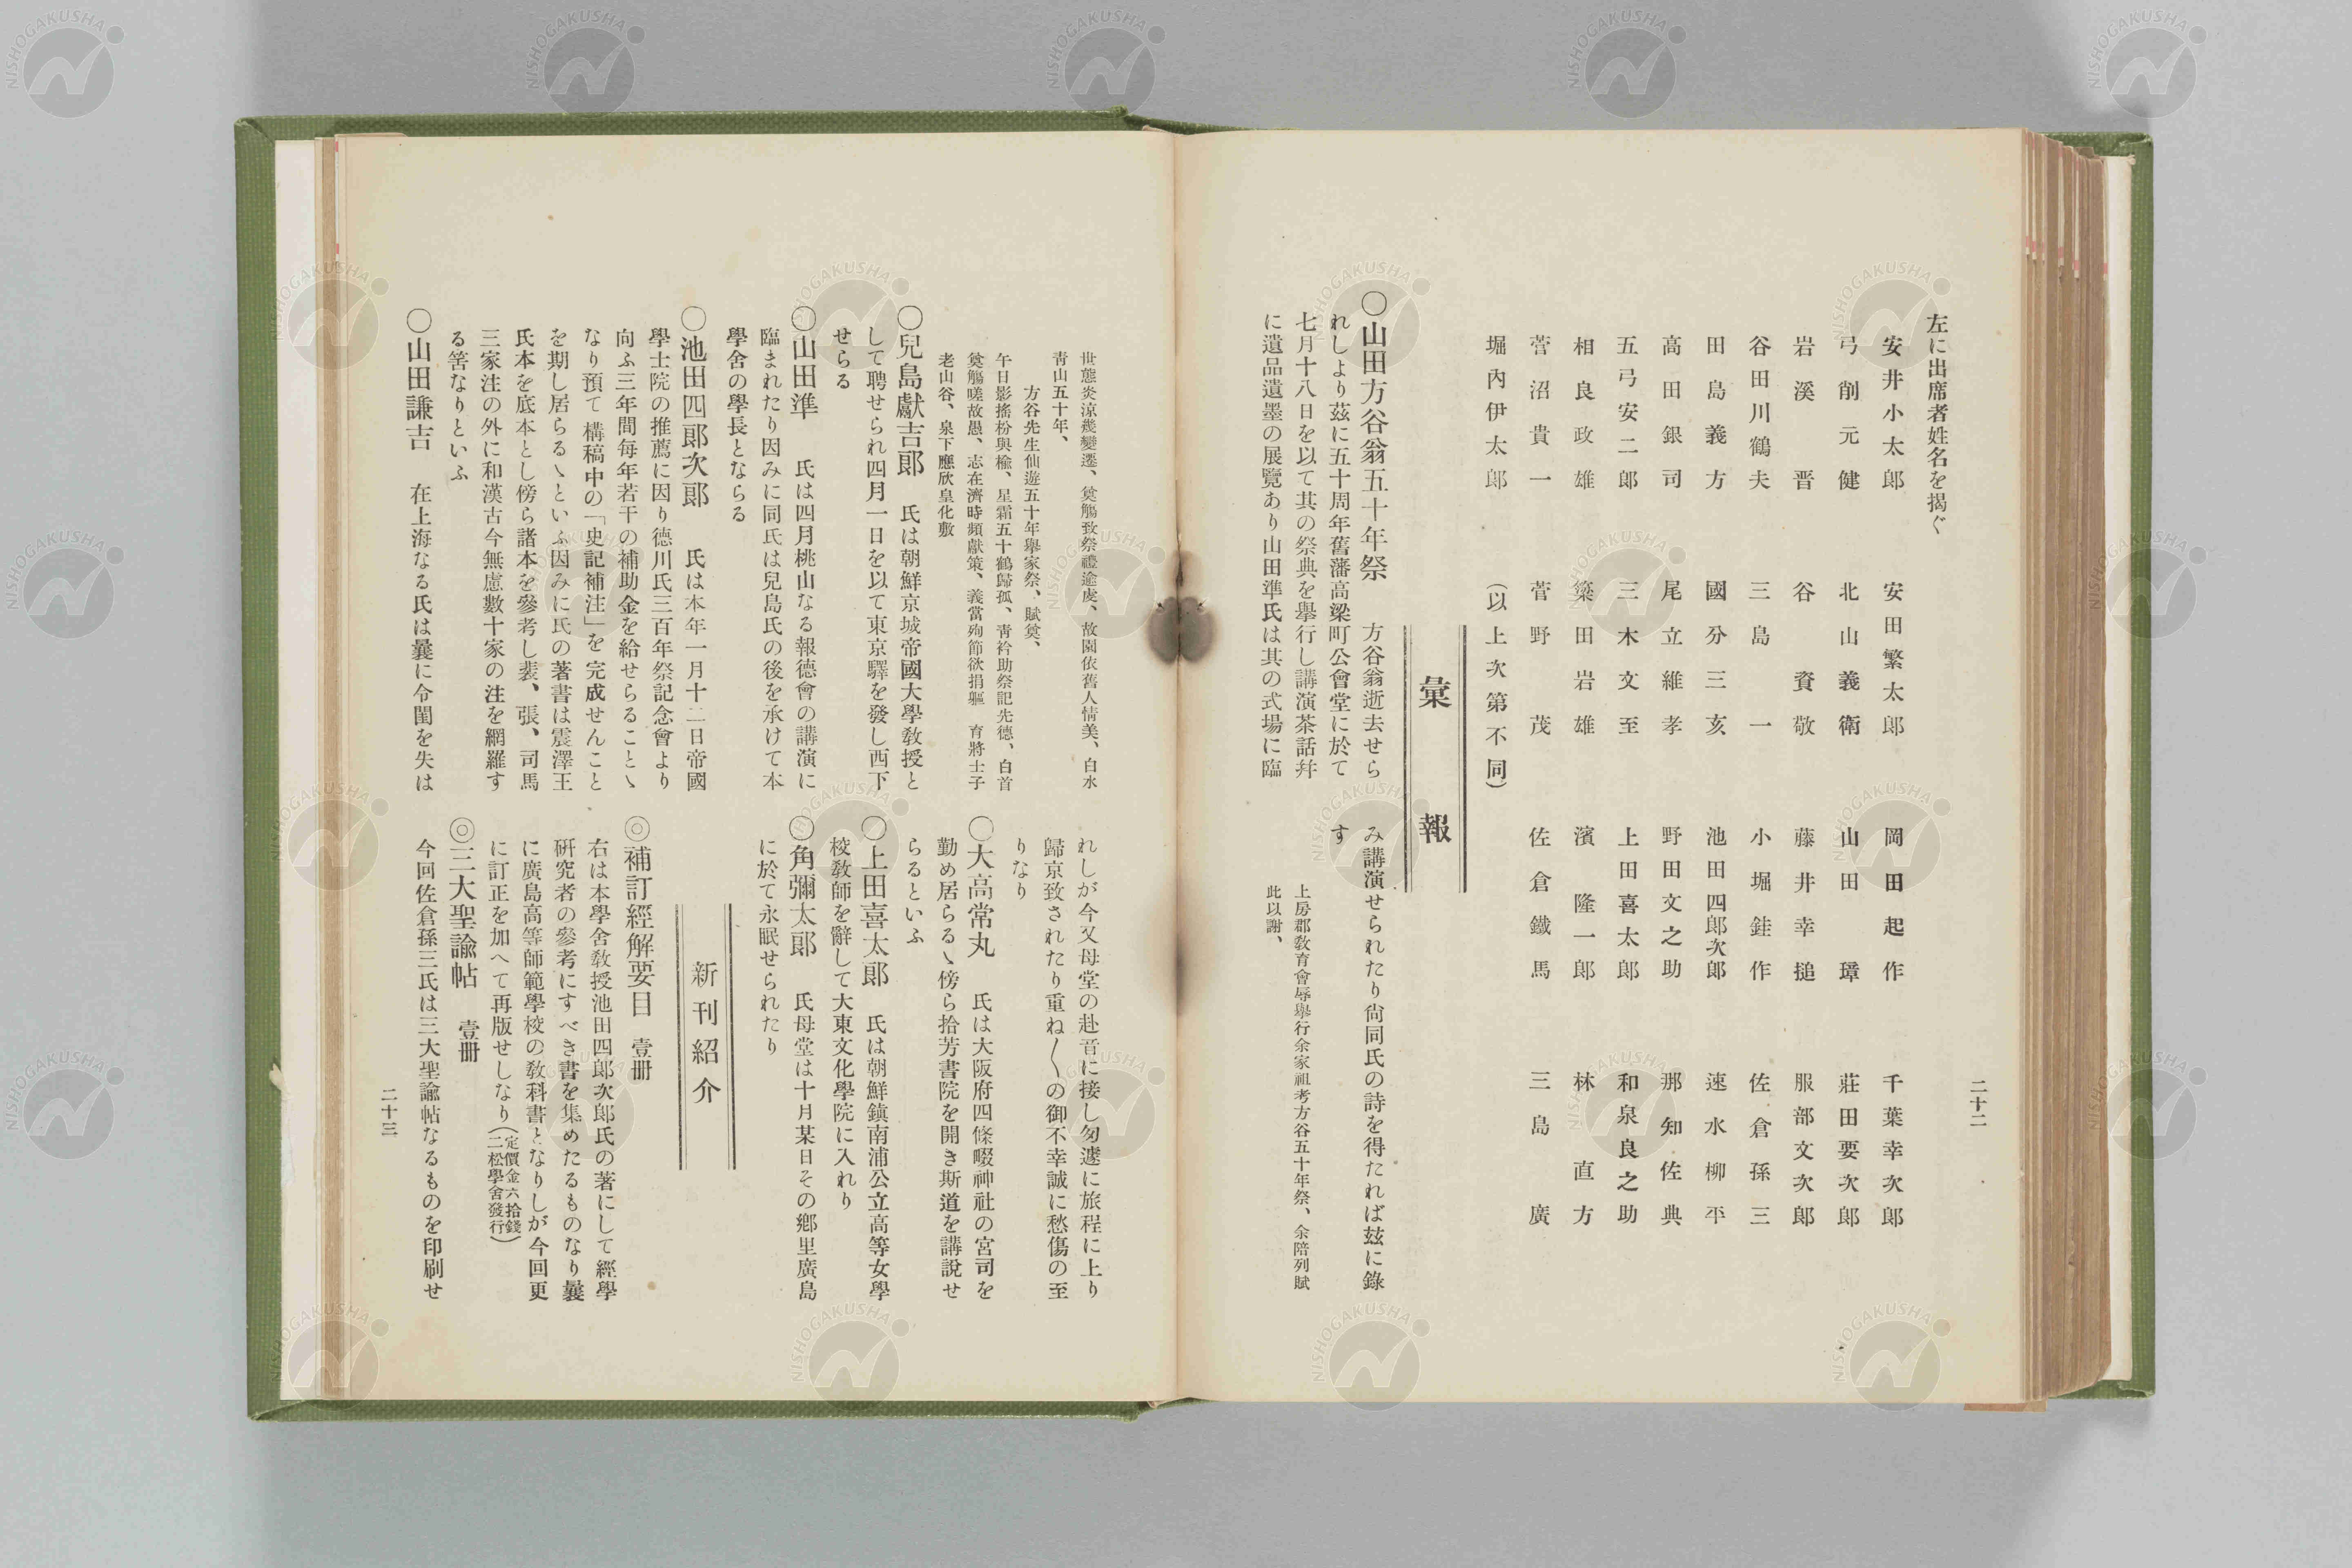 二十二
左に出席者姓名を揭ぐ
安井小太郎 安田繁太郎 岡田起作 千葉幸次郎
弓削元健 北山義衛 山田璋 莊田要次郎
岩溪晋 谷資敬 藤井幸搥 服部文次郎
谷田川鶴夫 三島一 小堀銈作 佐倉孫三
田島義方 國分三亥 池田四郎次郎 速水柳平
高田銀司 尾立維孝 野田文之助 那知佐典
五弓安二郎 三木文至 上田喜太郎 和泉良之助
相良政雄 簗田岩雄 濱隆一郎 林直方
菅沼貴一 菅野茂 佐倉鐵馬 三島廣
堀內伊太郎 (以上次第不同)
彙報
〇山田方谷翁五十年祭 方谷翁逝去せら
れしより玆に五十周年舊藩高梁町公會堂に於て
七月十八日を以て其の祭典を擧行し講演茶話幷
に遺品遺墨の展覽あり山田準氏は其の式場に臨
み講演せられたり尙同氏の詩を得たれば玆に錄
す
上房郡敎育會辱擧行余家祖考方谷五十年祭、余陪列賦
此以謝、
世態炎涼幾變遷、奠觴致祭禮逾虔、故園依舊人情美、白水
靑山五十年、
方谷先生仙遊五十年擧家祭、賦奠、
午日影搖枌與楡、星霜五十鶴歸孤、靑衿助祭記先德、白首
奠觴嗟故愚、志在濟時頻獻策、義當殉節欲捐軀 育將士子
老山谷、泉下應欣皇化敷
〇兒島獻吉郞 氏は朝鮮京城帝國大學敎授と
して聘せられ四月一日を以て東京驛を發し西下
せらる
〇山田準 氏は四月桃山なる報德會の講演に
臨まれたり因みに同氏は兒島氏の後を承けて本
學舍の學長とならる
〇池田四郞次郞 氏は本年一月十二日帝國
學士院の推薦に因り德川氏三百年祭記念會より
向ふ三年間每年若干の補助金を給せらることゝ
なり預て構稿中の「史記補注」を完成せんこと
を期し居らるゝといふ因みに氏の著書は震澤王
氏本を底本とし傍ら諸本を參考し裴、張、司馬
三家注の外に和漢古今無慮數十家の注を網羅す
る筈なりといふ
〇山田謙吉 在上海なる氏は曩に令閨を失は
れしが今又母堂の赴音に接し匆遽に旅程に上り
歸京致されたり重ね〱の御不幸誠に愁傷の至
りなり
〇大高常丸 氏は大阪府四條畷神社の宮司を
勤め居らるゝ傍ら拾芳書院を開き斯道を講說せ
らるといふ
〇上田喜太郞 氏は朝鮮鎭南浦公立高等女學
校敎師を辭して大東文化學院に入れり
〇角彌太郞 氏母堂は十月某日その鄕里廣島
に於て永眠せられたり
新刊紹介
◎補訂經解要目 壹册
右は本學舍敎授池田四郎次郎氏の著にして經學
硏究者の參考にすべき書を集めたるものなり曩
に廣島高等師範學校の敎科書となりしが今回更
に訂正を加へて再版せしなり(定價金六拾錢
二松學舍發行)
◎三大聖諭帖 壹册
今回佐倉孫三氏は三大聖諭帖なるものを印刷せ
二十三
NISHOGAKUSHA